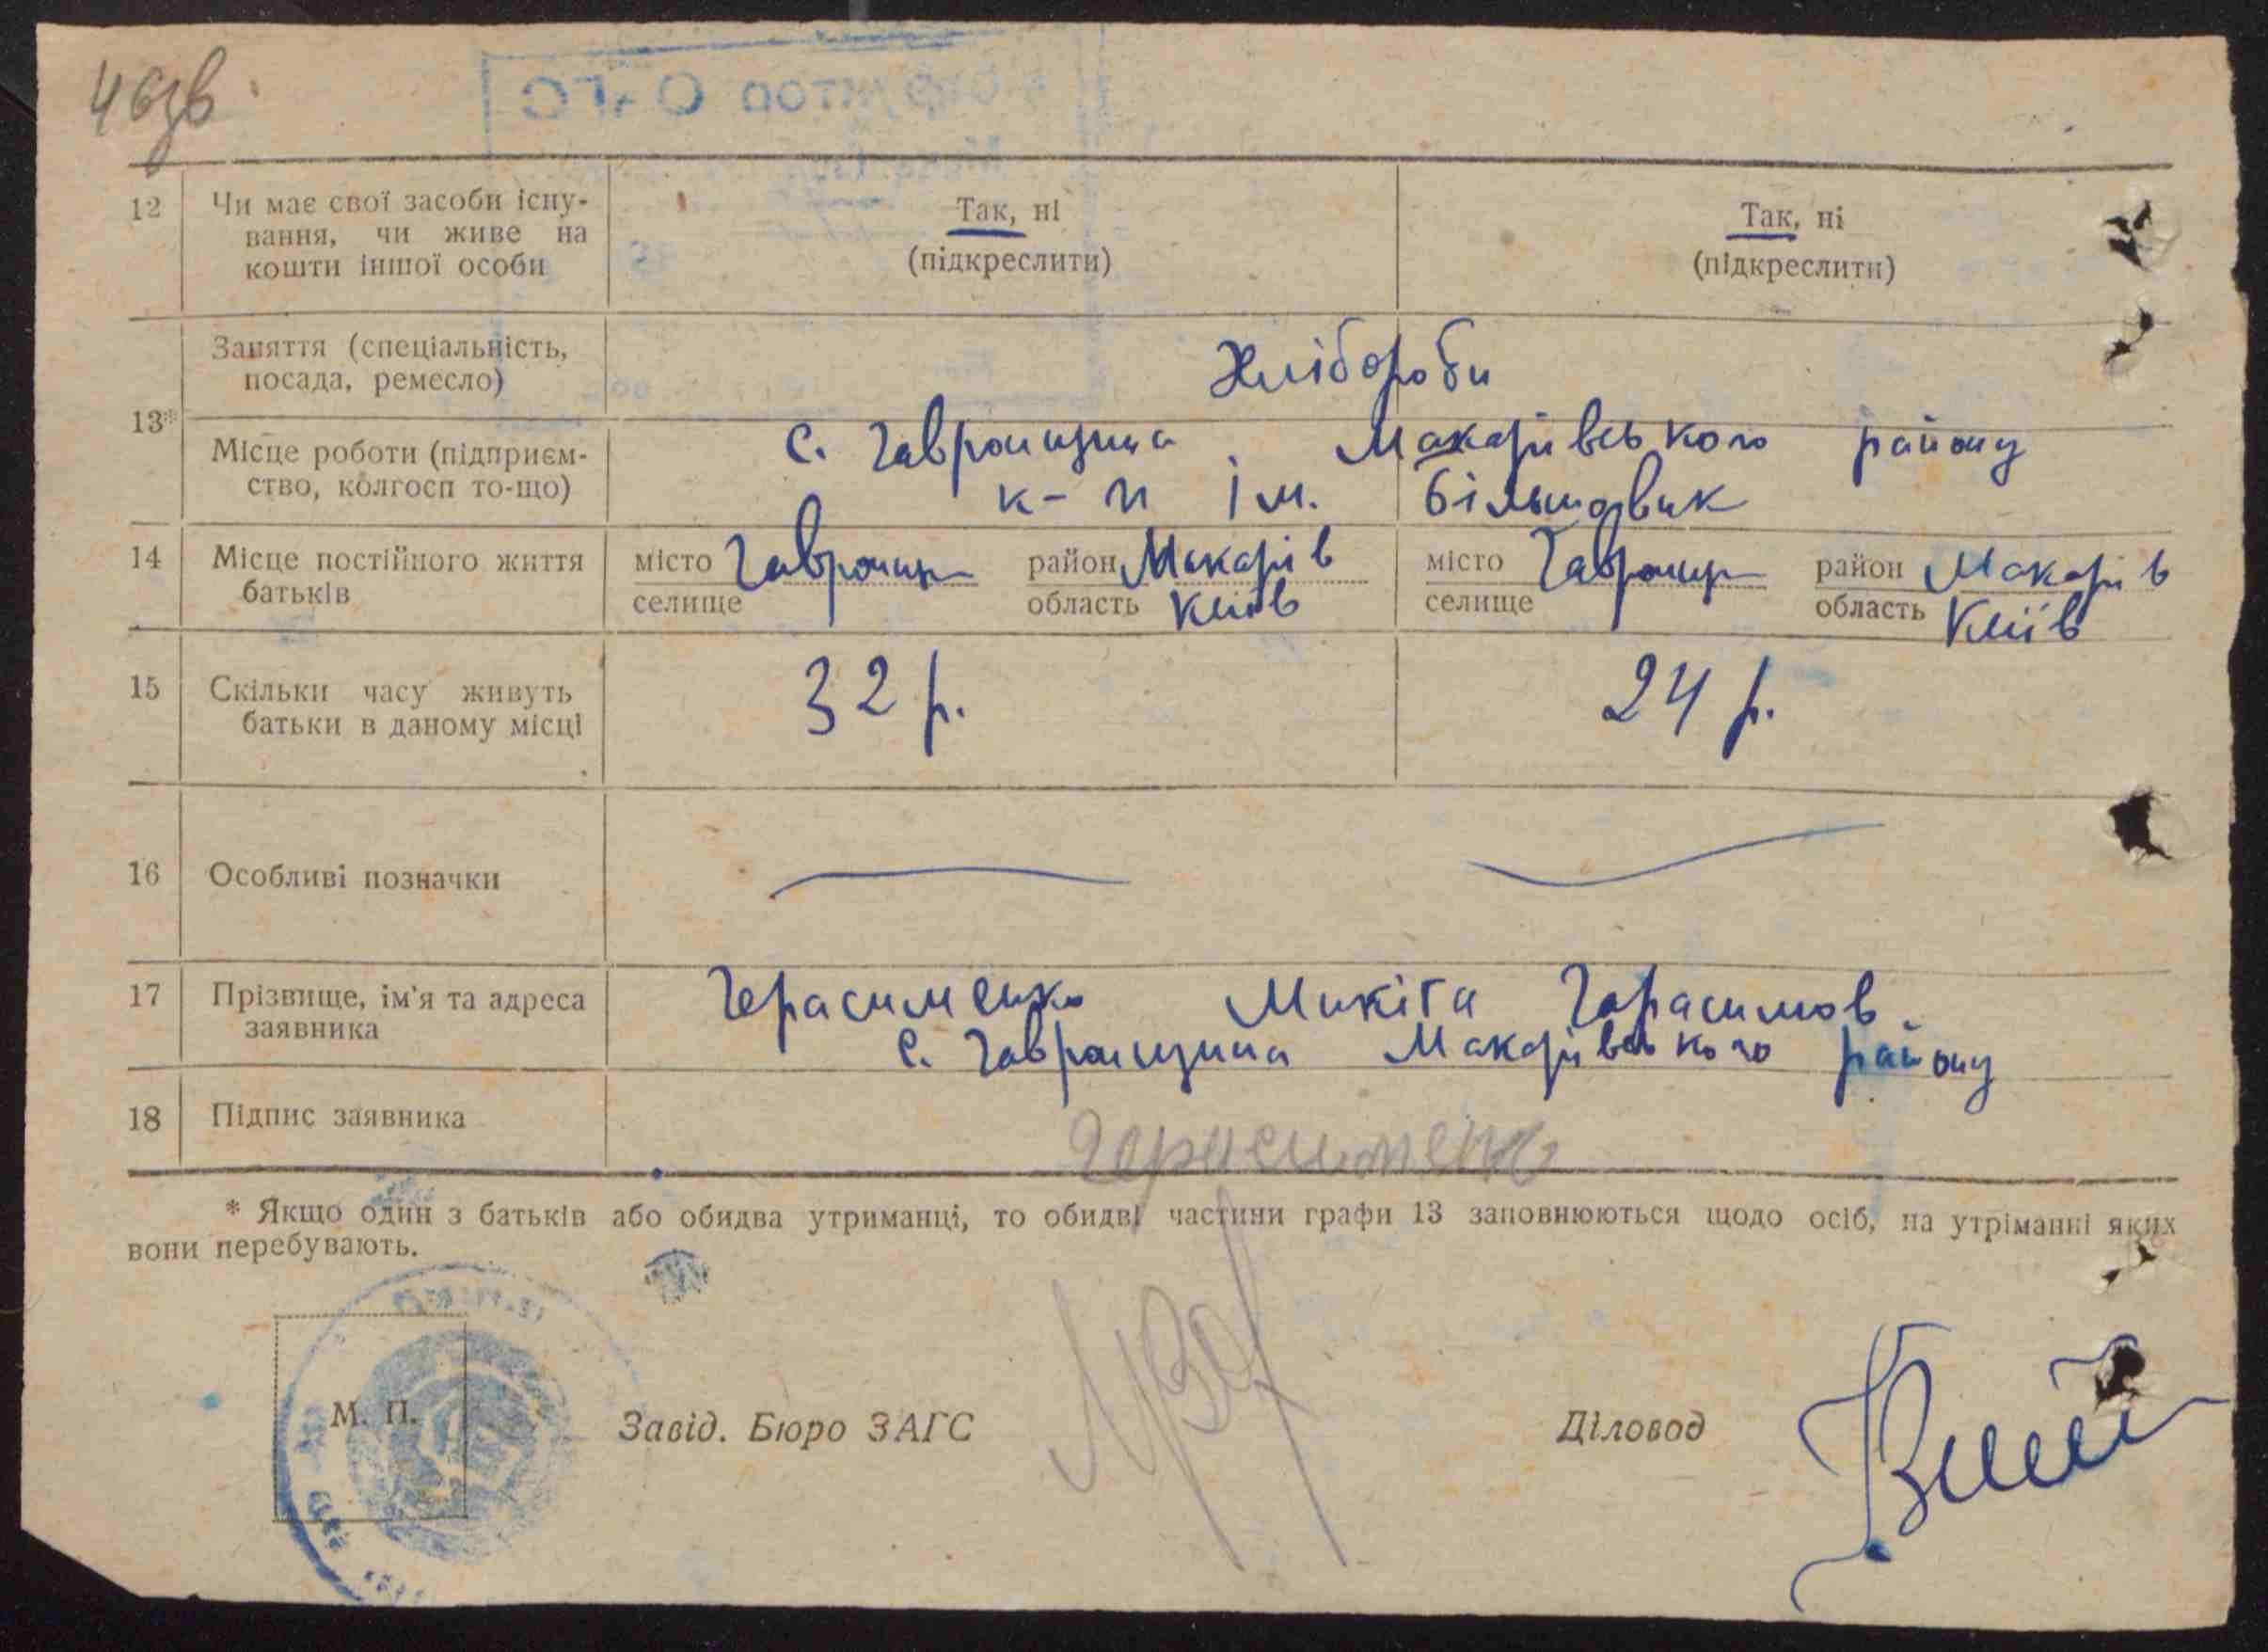 46зв
12 Чи має свої засоби існу-
вання, чи живе на
кошти іншої особи
Так, ні
(підкреслити)
Так, ні
(підкреслити)
13* Заняття (спеціальність,
посада, ремесло)
Хлібороби
Місце роботи (підприєм-
ство, колгосп то-що)
с. Гавронщина Макарівського району
к-п ім. більшовик
14 Місце постійного життя
батьків
місто селище Гавронщ район Макарів
область Київ
місто селище Гавронщ район Макарів
область Київ
15 Скільки часу живуть
батьки в даному місці
32 р.
24 р.
16 Особливі позначки
17 Прізвище, ім'я та адреса
заявника
Герасименко Микіта Гарасимов.
с. Гавронщина Макарівського району
18 Підпис заявника
Герасименко
* Якщо один з батьків або обидва утриманці, то обидві частини графи 13 заповнюються щодо осіб, на утріманні яких
вони перебувають.
М. П.
Завід. Бюро ЗАГС
Діловод